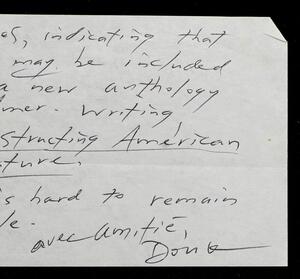 indicating that
may be included
a new anthology
mer. writing
structing Américan
ture.
s hard to remain
le.
avec amitié,